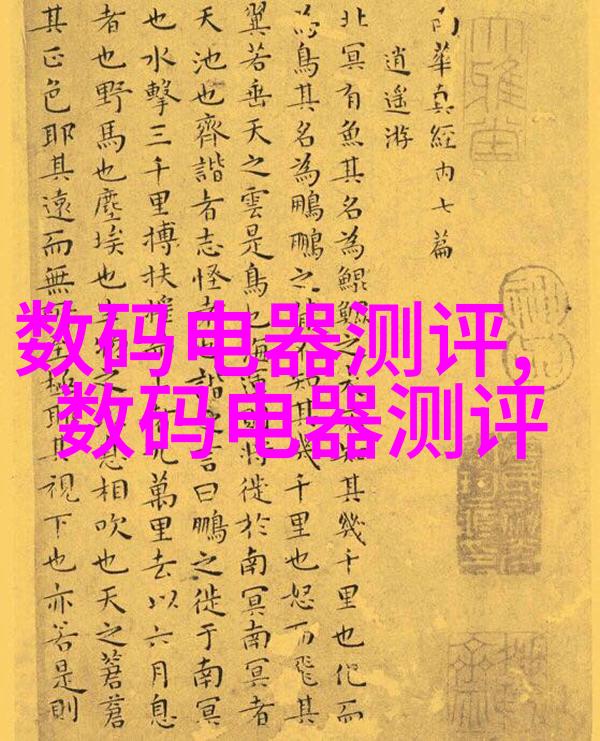 数码电器测评,
数码电器测评
南華真經內七篇
逍遙游
北冥有魚其名為鯤鯤之大不知其幾千里也化而
為鳥其名為鵬鵬之背不知其幾千里也怒而飛其
翼若垂天之雲是鳥也海運則將徙於南冥南冥者
天池也齊諧者志怪者也諧之言曰鵬之徙于南冥
也水擊三千里搏扶搖九萬里去以六月息
者也野馬也塵埃也生物之息相吹也天之蒼蒼
其正色耶其遠而無所至極耶其視下也亦若是則